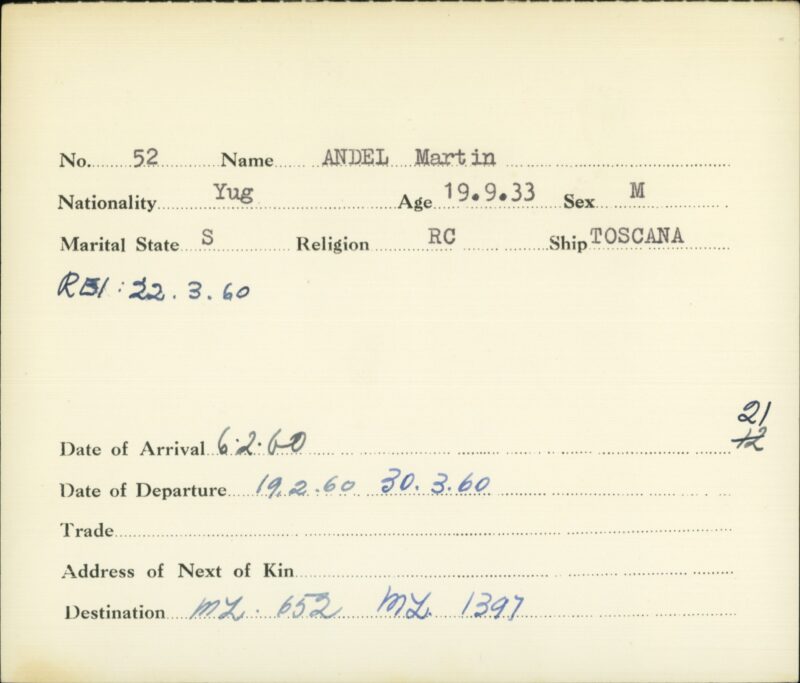 No. 52 Name ANDEL Martin
Nationality Yug Age 19.9.33 Sex M
Marital State S Religion RC Ship TOSCANA
: 22.3.60
21
12
Date of Arrival 6.2.60
Date of Departure 19.2.60 30.3.60
Trade
Address of Next of Kin
Destination ML. 652 ML. 1397